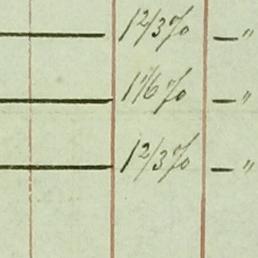 12/3% — "
11/6% — "
12/3% — "